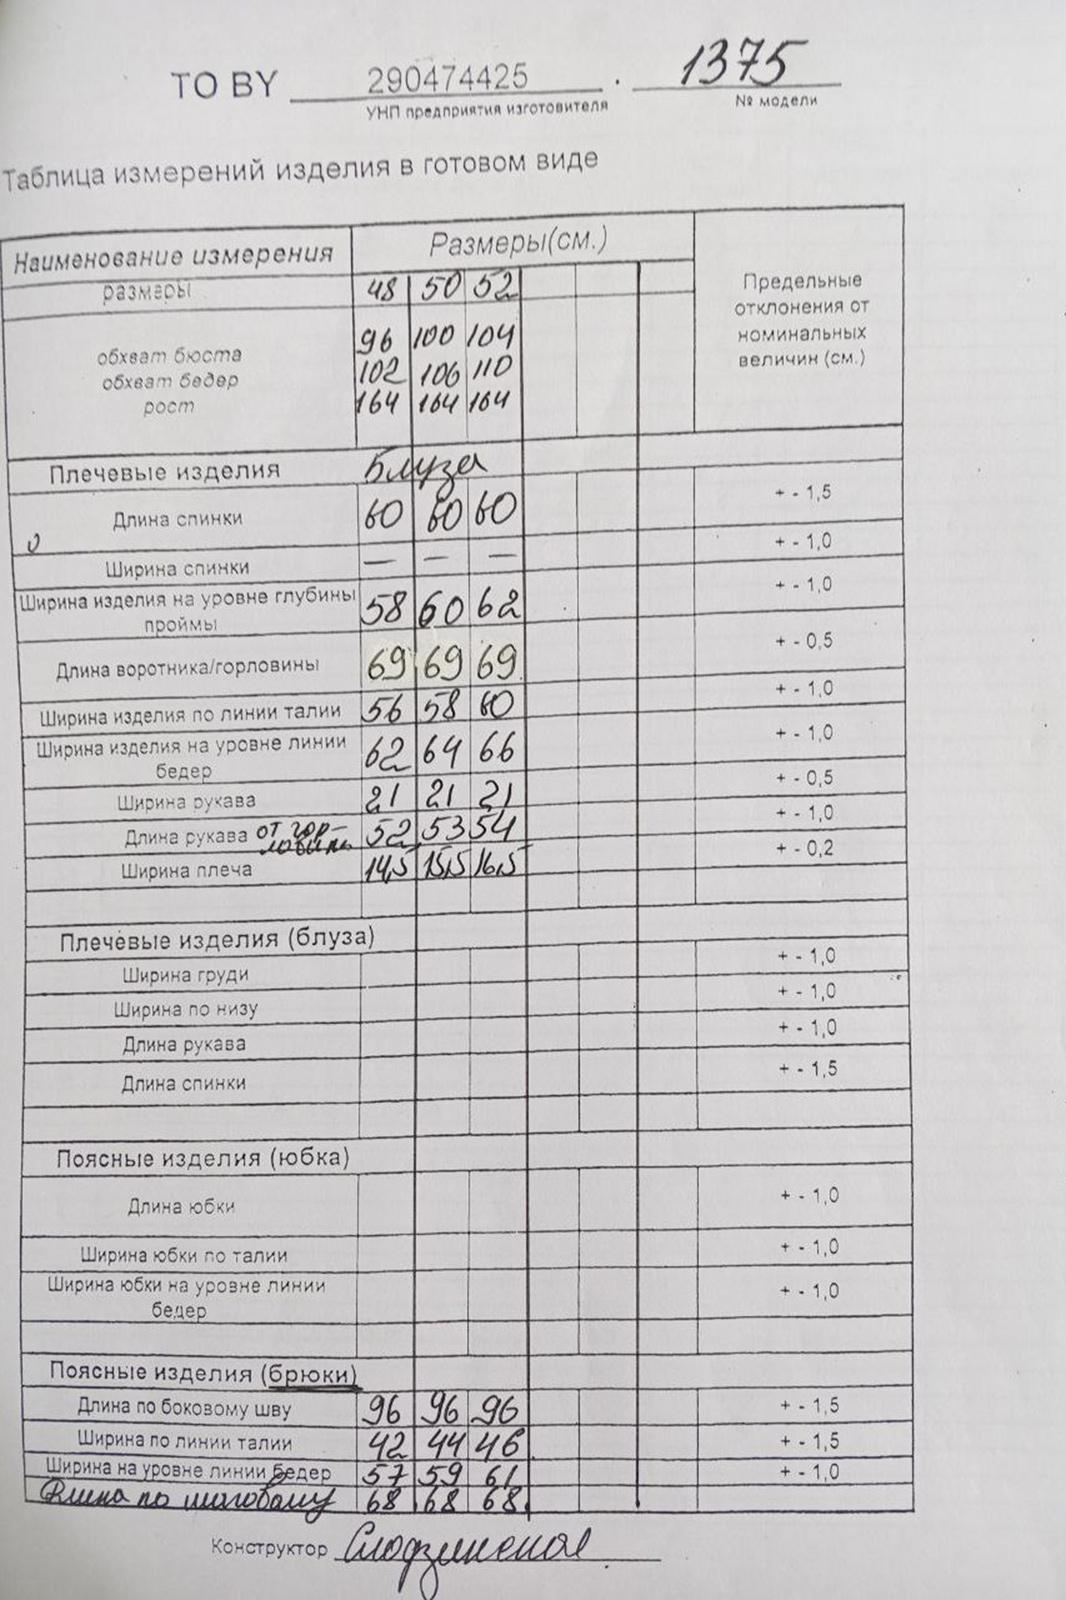 ТО BY 290474425 . 1375
УНП предприятия изготовителя № модели
Таблица измерений изделия в готовом виде
Наименование измерения Размеры(см.) Предельные отклонения от номинальных величин (см.)
размеры 48 50 52
обхват бюста 96 100 104
обхват бедер 102 106 110
рост 164 164 164
Плечевые изделия Блуза
Длина спинки 60 60 60 + - 1,5
Ширина спинки — — — + - 1,0
Ширина изделия на уровне глубины проймы 58 60 62 + - 1,0
Длина воротника/горловины 69 69 69 + - 0,5
Ширина изделия по линии талии 56 58 60 + - 1,0
Ширина изделия на уровне линии бедер 62 64 66 + - 1,0
Ширина рукава 21 21 21 + - 0,5
Длина рукава от горловины 52 53 54 + - 1,0
Ширина плеча 14,5 15,5 16,5 + - 0,2
Плечевые изделия (блуза)
Ширина груди + - 1,0
Ширина по низу + - 1,0
Длина рукава + - 1,0
Длина спинки + - 1,5
Поясные изделия (юбка)
Длина юбки + - 1,0
Ширина юбки по талии + - 1,0
Ширина юбки на уровне линии бедер + - 1,0
Поясные изделия (брюки)
Длина по боковому шву 96 96 96 + - 1,5
Ширина по линии талии 42 44 46 + - 1,5
Ширина на уровне линии бедер 57 59 61 + - 1,0
Длина по шаговому 68 68 68
Конструктор Слодзинская